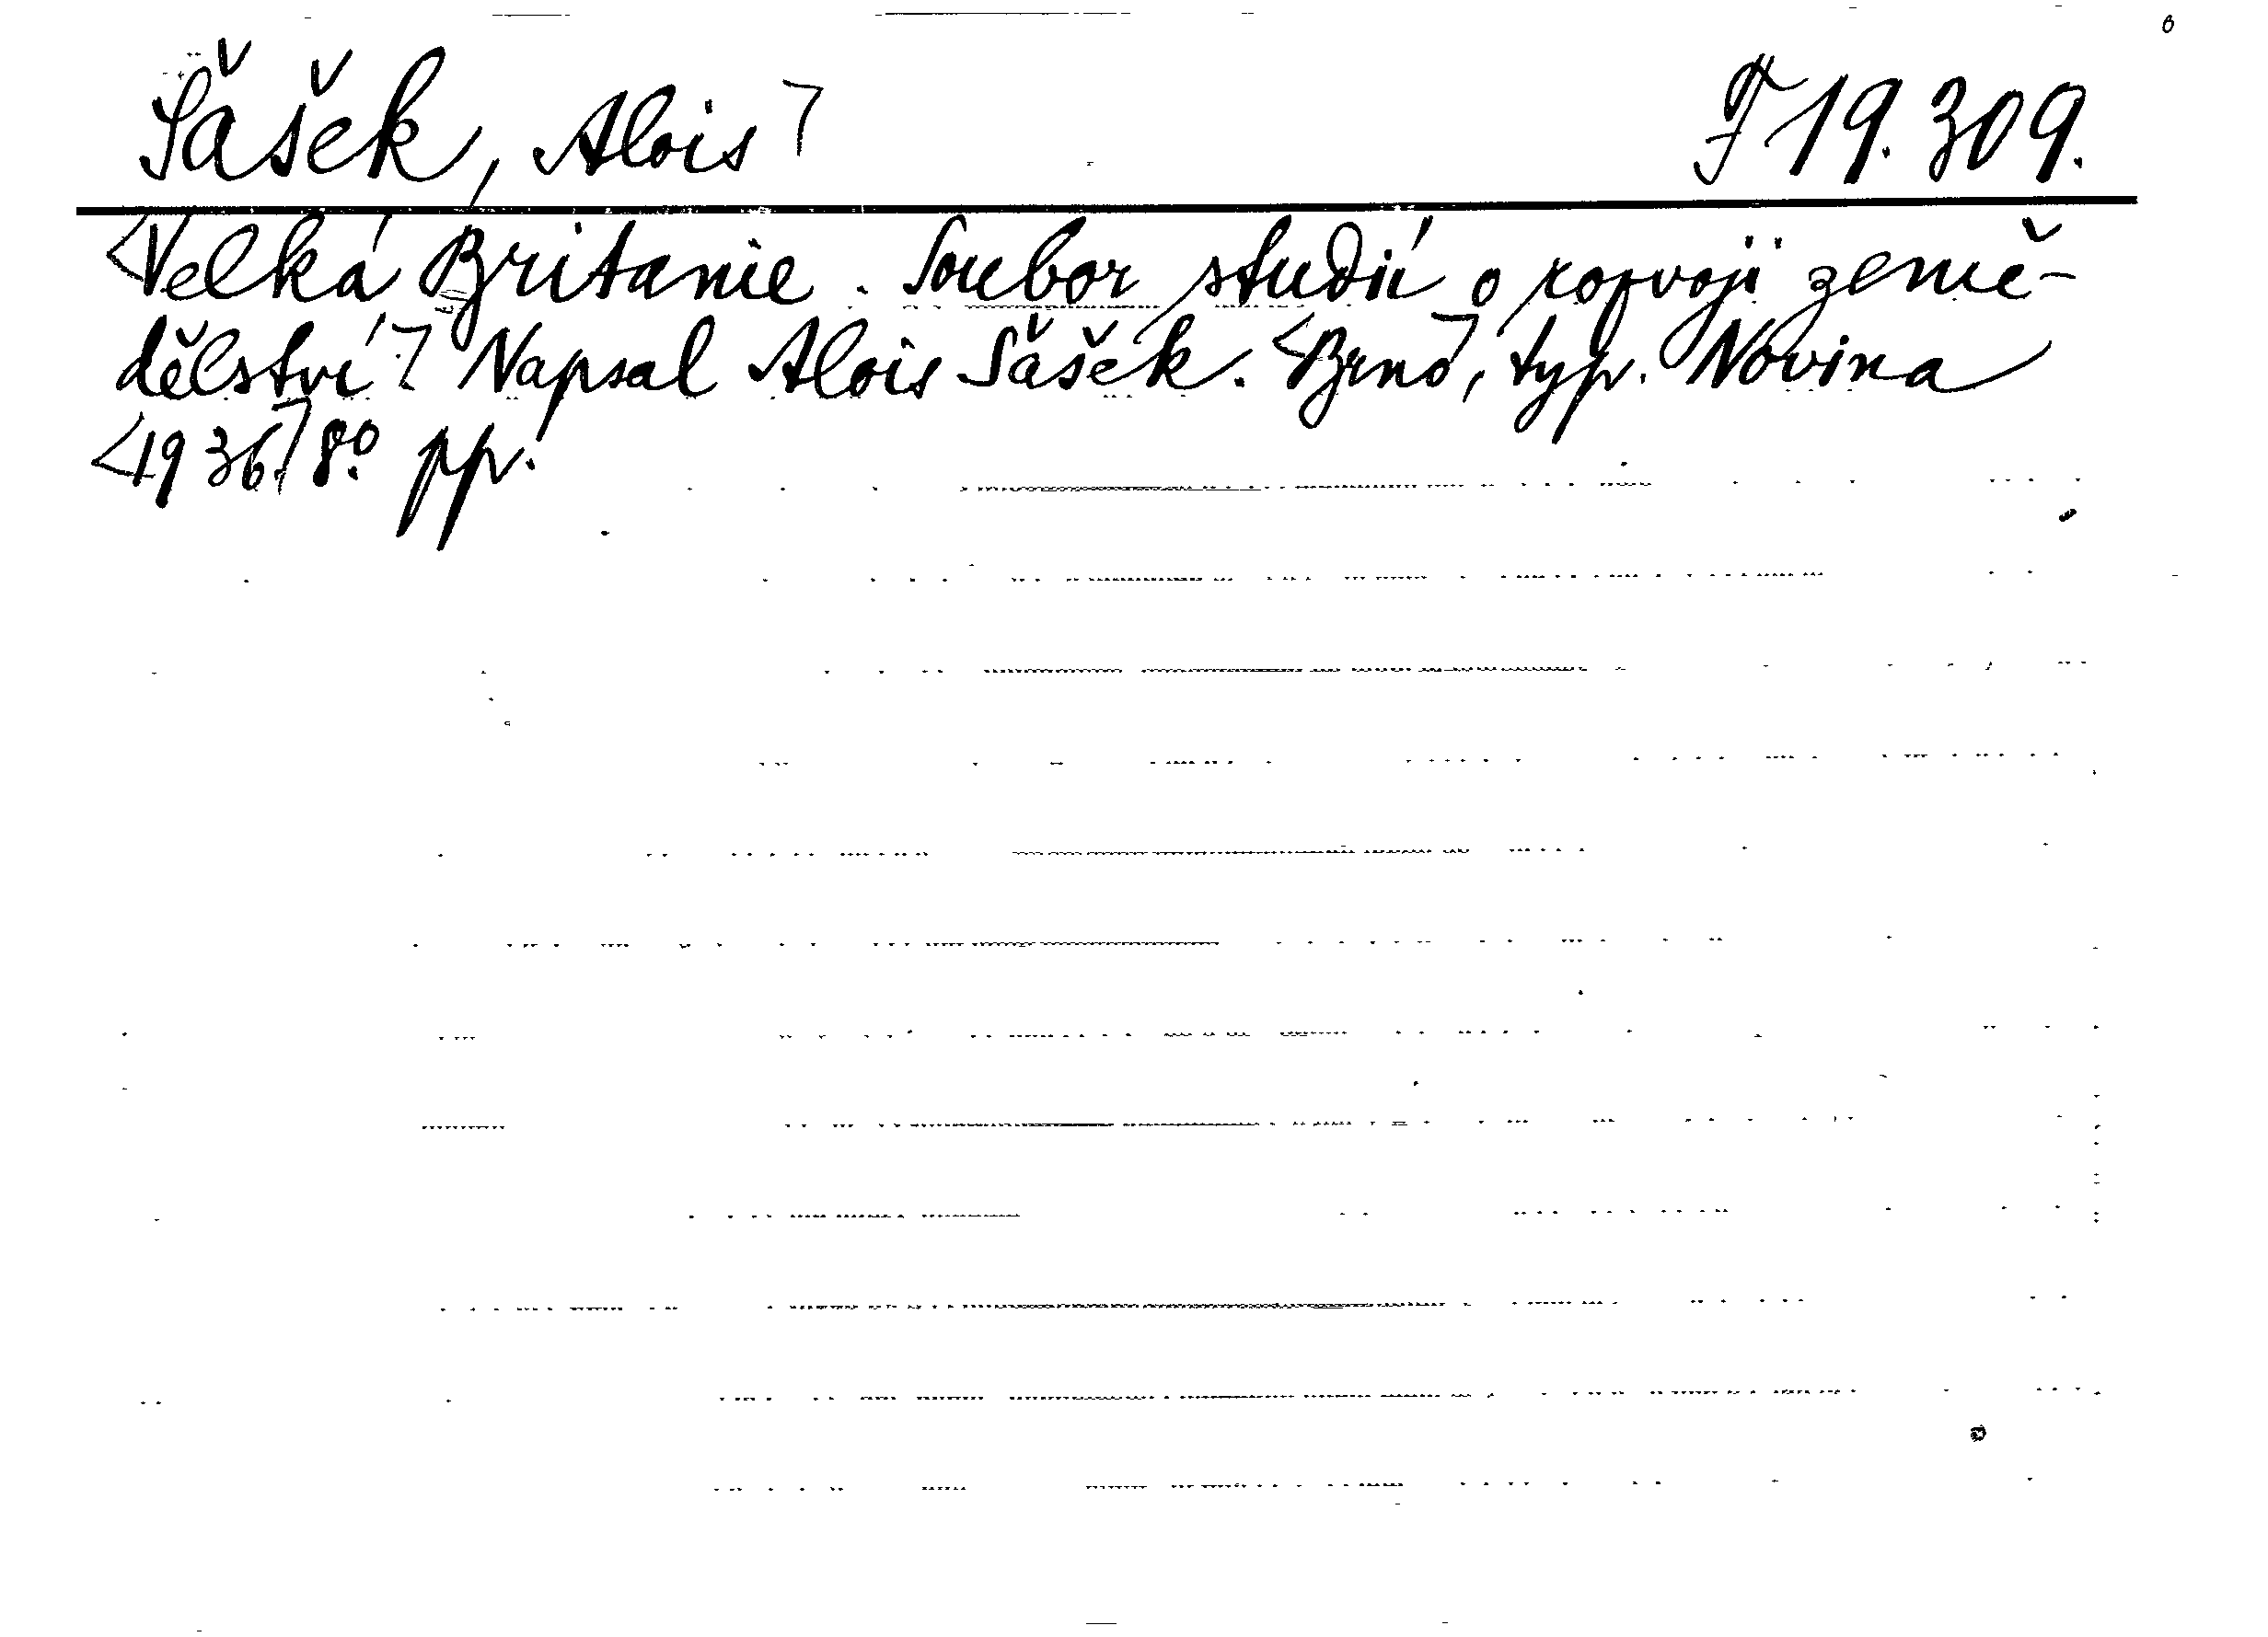 Šášek, Alois⁊ F 19.309.
<Velká Britanie. Soubor studií o rozvoji země-
dělství.⁊ Napsal Alois Šášek. <Brno⁊, typ. Novina
<1936.⁊ 8.° pp.